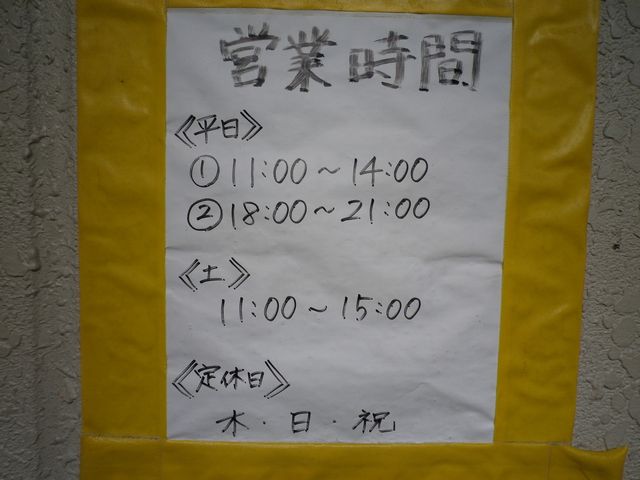 営業時間
《平日》
①11:00～14:00
②18:00～21:00
《土》
11:00～15:00
《定休日》
木・日・祝